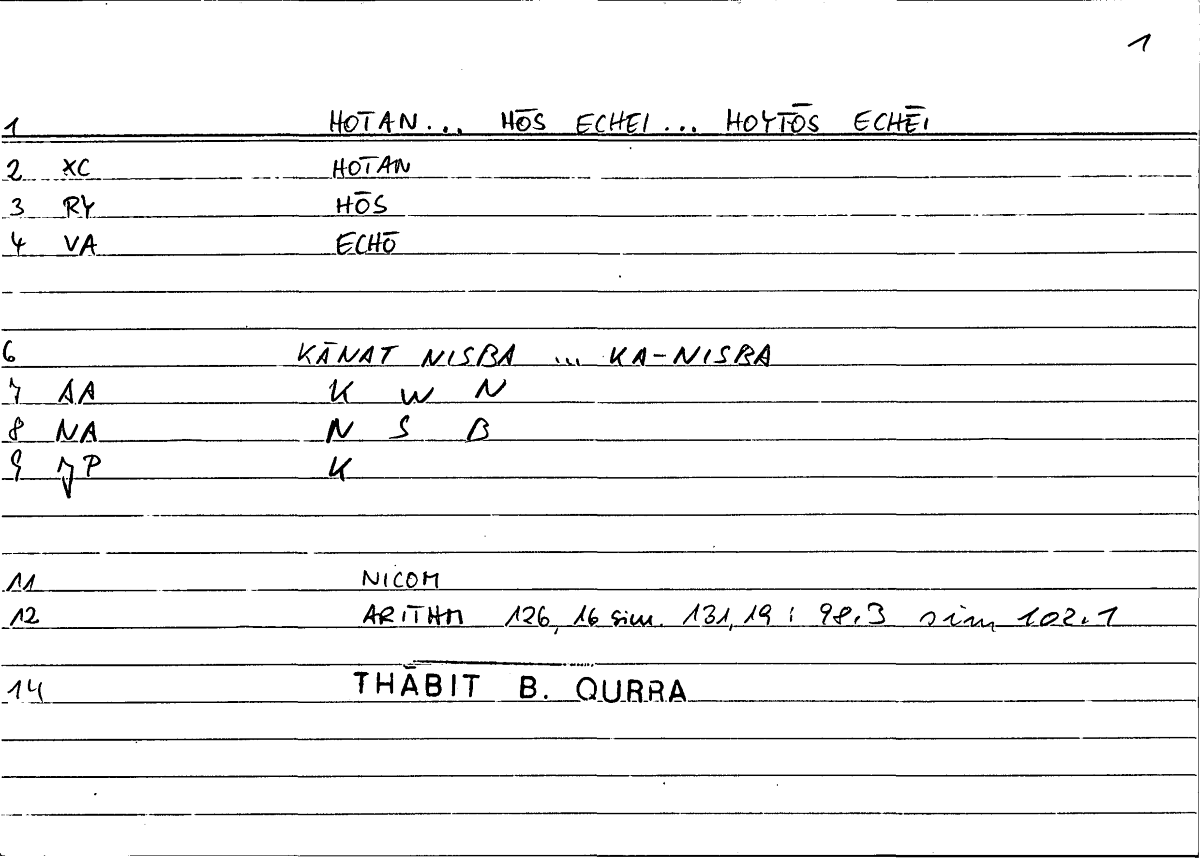 1
1 HOTAN... HŌS ECHEI... HOYTŌS ECHĒI
2 XC HOTAN
3 RY HŌS
4 VA ECHŌ
6 KĀNAT NISBA ... KA-NISBA
7 AA K W N
8 NA N S B
9 JP K
11 NICOM
12 ARITHM 126, 16 sim. 131, 19 : 98.3 sim 102.1
14 THĀBIT B. QURRA